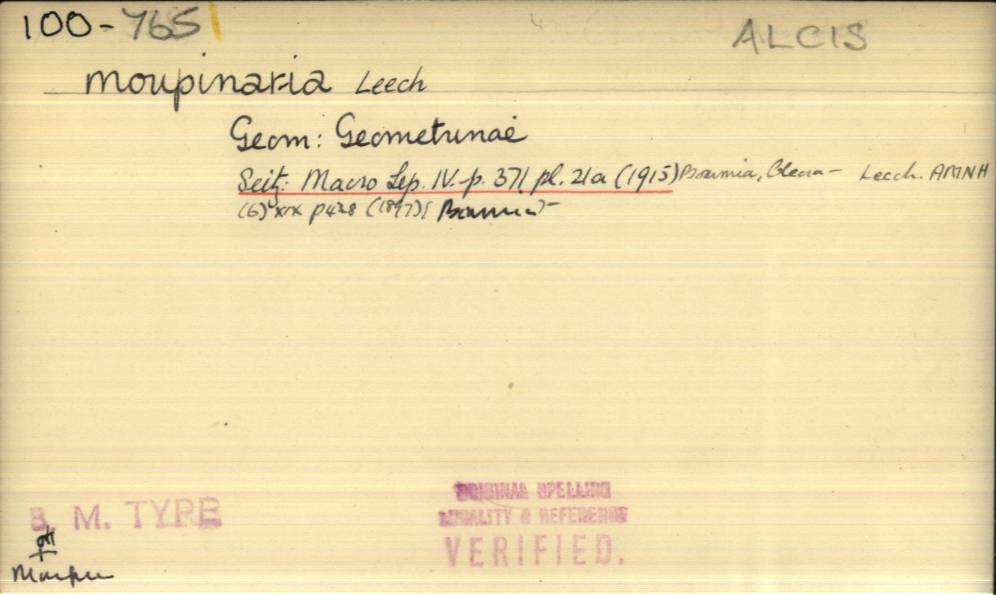 100-765
ALCIS
moupinaria Leech
Geom: Geometrinae
Seitz: Macro Lep. IV. p. 371 pl. 21a (1915) Boarmia, Leech. AMNH
(6) xix p 428 (1897) (Boarmia)-
B. M. TYPE
Moupin
ORIGINAL SPELLING
LOCALITY & REFERENCE
VERIFIED.